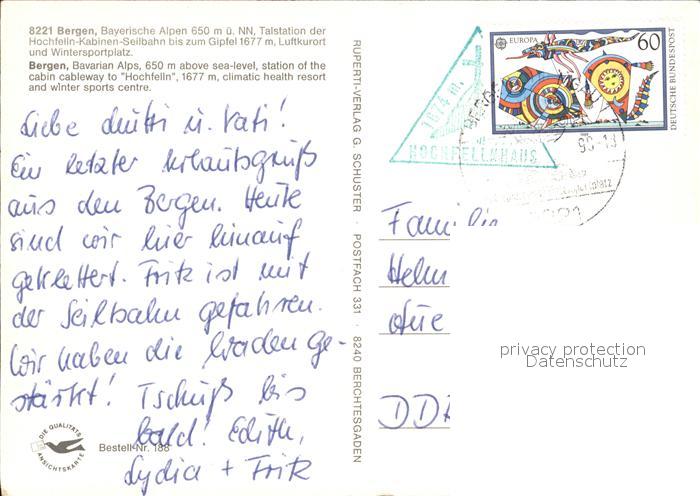 8221 Bergen, Bayerische Alpen 650 m ü. NN, Talstation der
Hochfelln-Kabinen-Seilbahn bis zum Gipfel 1677 m, Luftkurort
und Wintersportplatz.
Bergen, Bavarian Alps, 650 m above sea-level, station of the
cabin cableway to "Hochfelln", 1677 m, climatic health resort
and winter sports centre.
Liebe Mutti u. Vati!
Ein letzter Urlaubsgruß
aus den Bergen. Heute
sind wir hier hinauf
geklettert. Fritz ist mit
der Seilbahn gefahren.
Wir haben die Waden ge-
stärkt! Tschüß bis
bald! Edith,
Lydia + Fritz
DIE QUALITÄTS
ANSICHTSKARTE
Bestell-Nr. 188
RUPERTI-VERLAG G. SCHUSTER · POSTFACH 331 · 8240 BERCHTESGADEN
1674 m.
HOCHFELLNHAUS
EUROPA
60
DEUTSCHE BUNDESPOST
Familie
Helm
DDR
privacy protection
Datenschutz